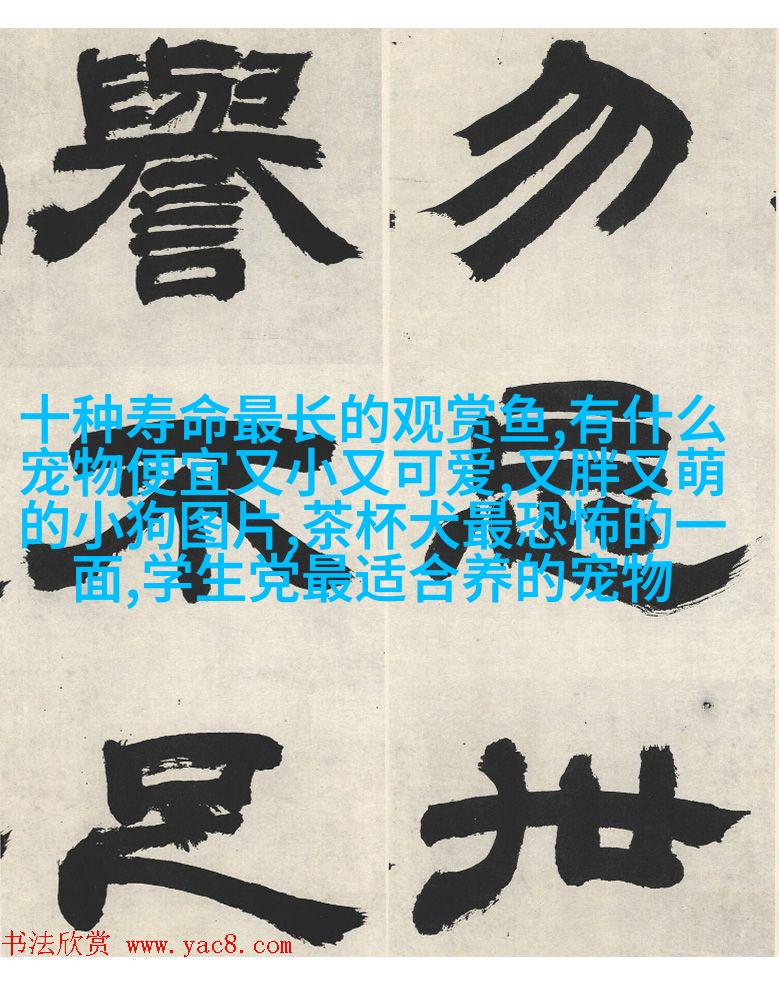 勿
世
譽
不
足
十种寿命最长的观赏鱼,有什么
宠物便宜又小又可爱,又胖又萌
的小狗图片,茶杯犬最恐怖的一
面,学生党最适合养的宠物
书法欣赏 www.yac8.com